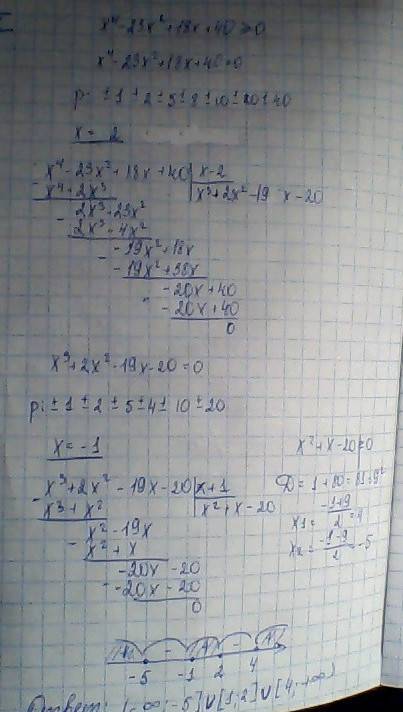 x⁴-23x²+18x+40≥0
x⁴-23x²+18x+40=0
p: ±1 ±2 ±5 ±8 ±10 ±20 ±40
x= 2
x⁴-23x²+18x+40 | x-2
x⁴+2x³ | x³+2x²-19 x-20
2x³+23x²
2x³-4x²
-19x²+18x
-19x²+38x
-20x+40
-20x+40
0
x³+2x²-19x-20=0
p: ±1 ±2 ±5 ±4 ±10 ±20
x=-1
x³+2x²-19x-20 | x+1
x³+x² | x²+x-20
x²-19x
x²+x
-20x-20
-20x-20
0
x²+x-20=0
D=1+80=81=9²
x₁=(-1+9)/2=4
x₂=(-1-9)/2=-5
+ - + - +
-5 -1 2 4
Ответ: (-∞;-5]∪[-1;2]∪[4;+∞)